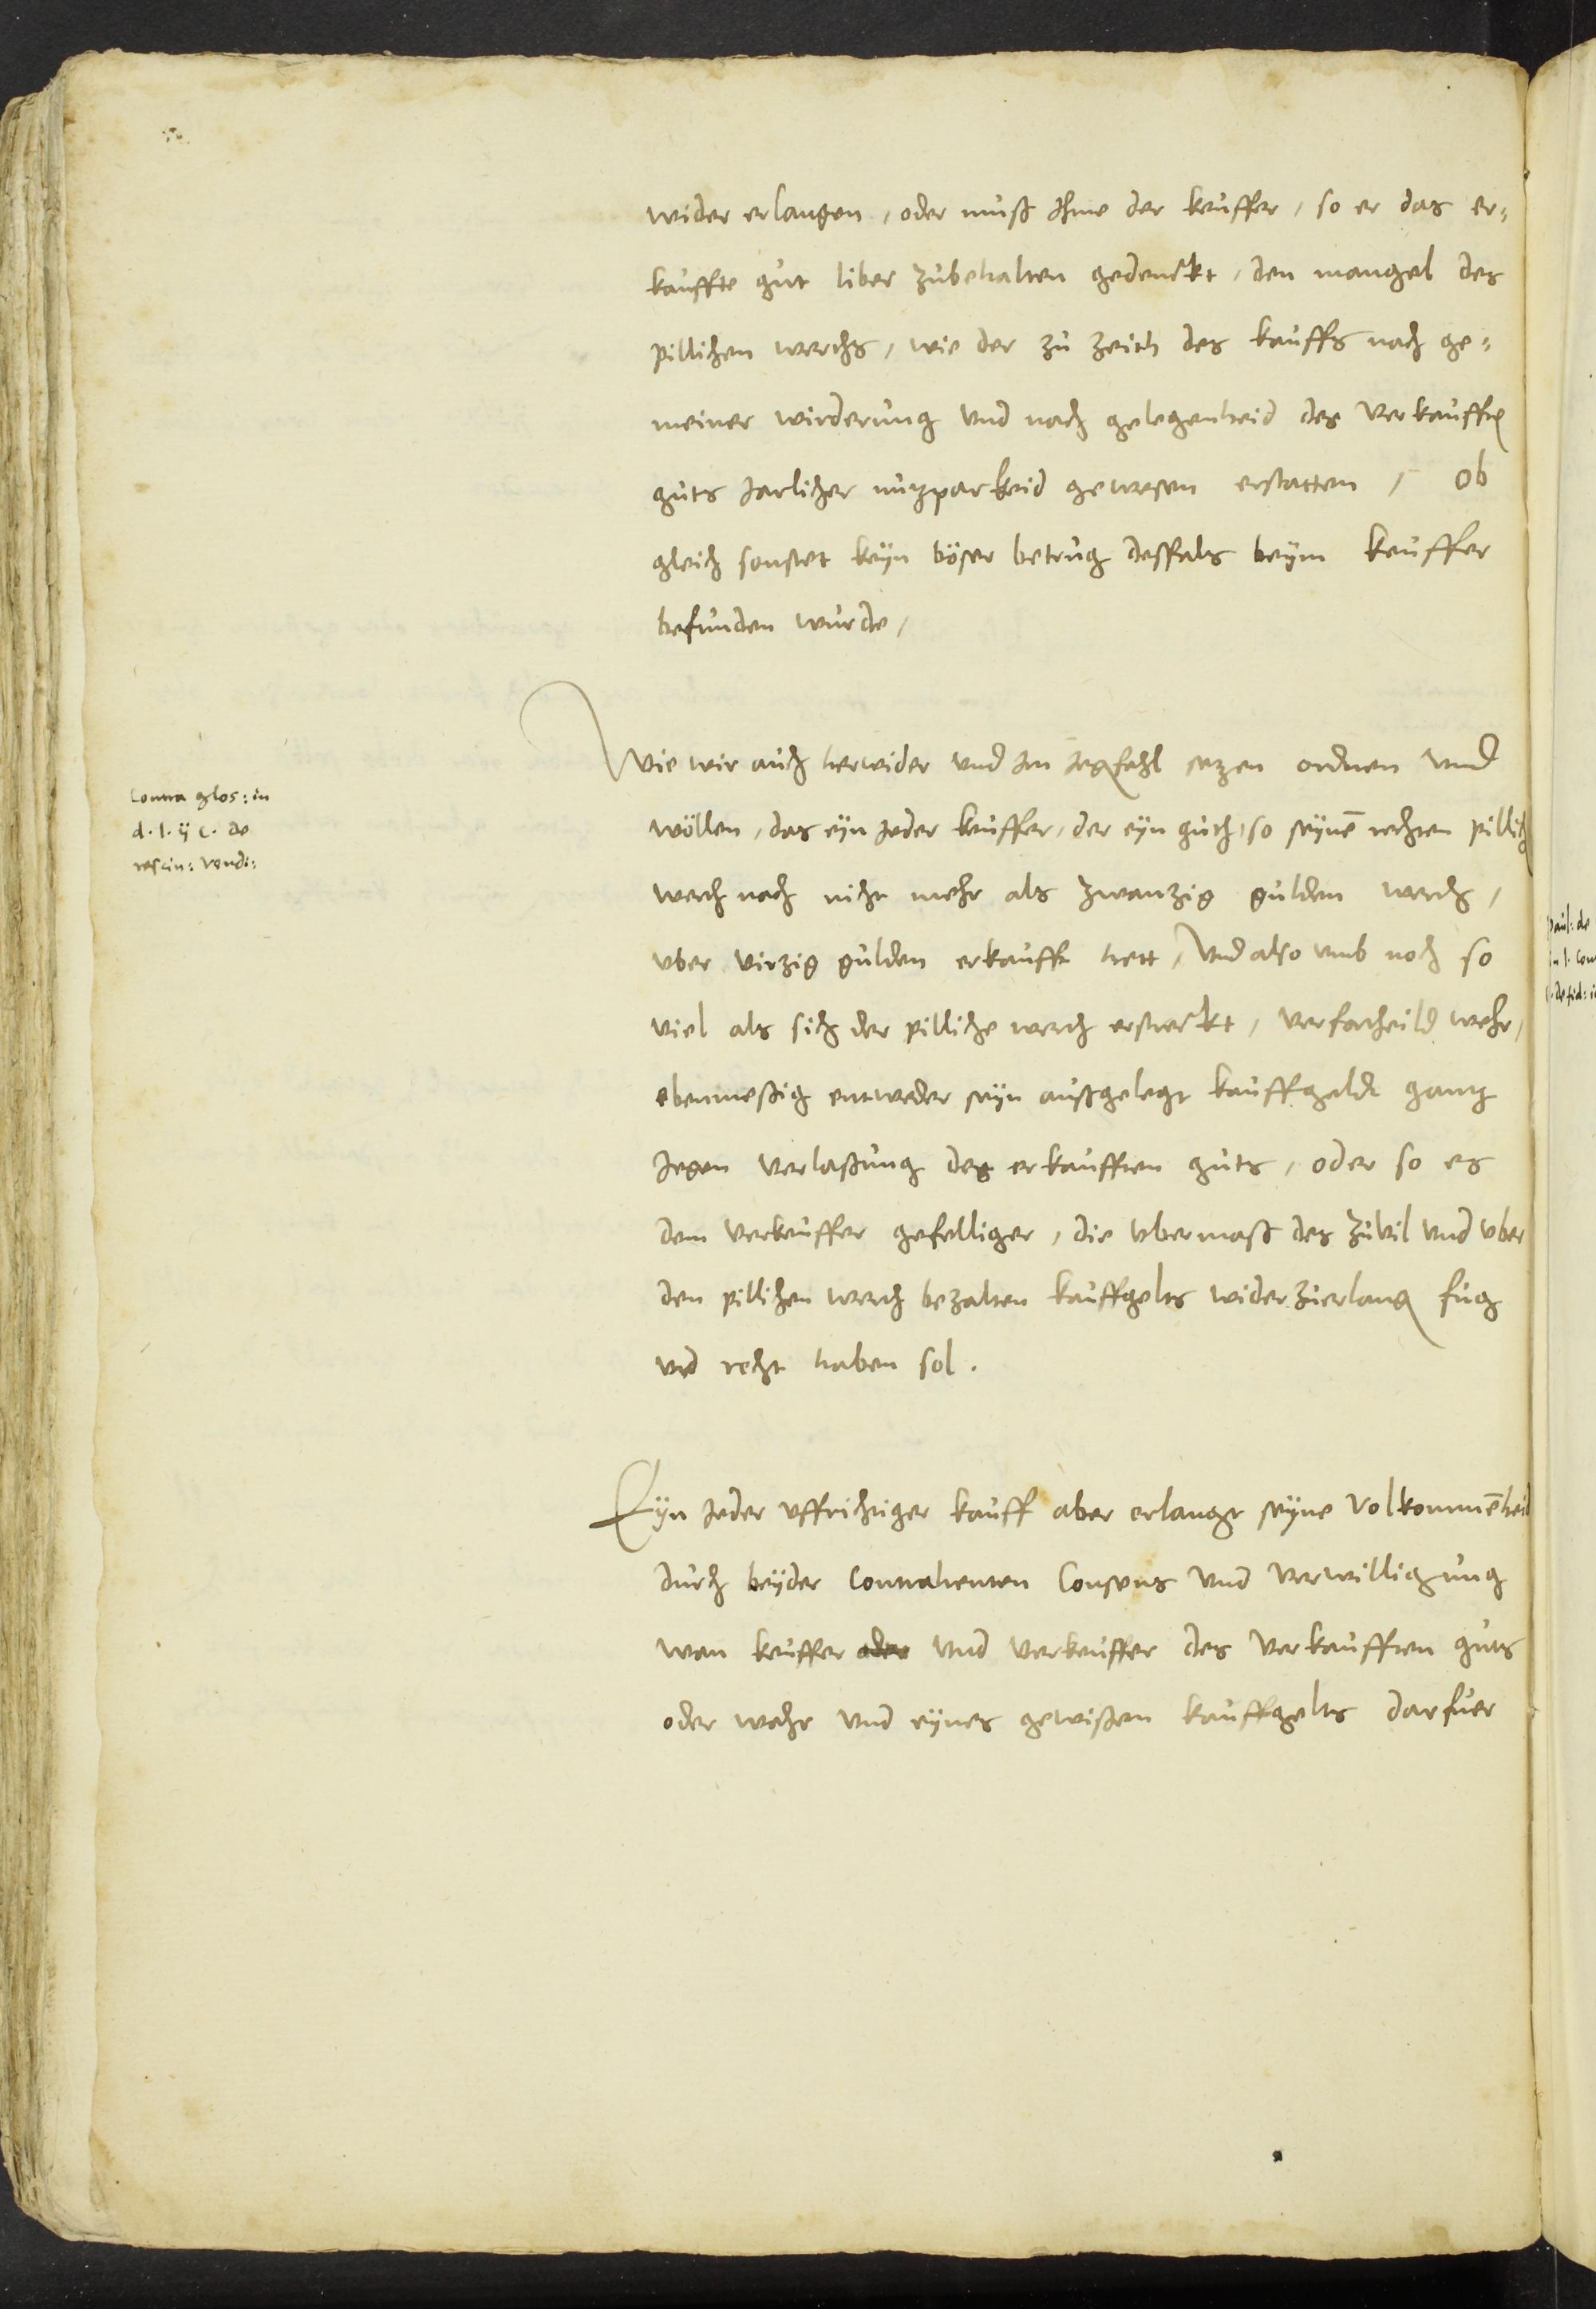 wider erlangen, oder muß Ihme der keuffer, so er das er-
kauffte gut liber zubehalten gedenckt, den mangel des
pillichen werths, wie der zu zeith des kauffs nach ge-
meiner wirderung vnd nach gelegenheid des verkaufften
guts Jarlicher nutzparkeid gewesen erstatten, Ob
gleich sonstet keyn böser betrug desfals beym keuffer
befunden wurde,
Wie wir auch herwider vnd Im Jegenfahl setzen ordnen vnd
Contra glos: in
d. l. ij C. de
rescin: vendi:
wöllen, das eyn Jeder keuffer, der eyn guth, so seynem rechten pillich
werth nach nicht mehr als zwanzig gulden werth,
vber virzig gulden erkaufft hett, vnd also vmb noch so
viel als sich der pilliche werth erstreckt, verfortheild wehr,
ebenmeßig entweder seyn außgelegt kauffgeldt gantz
Jegen verlaßung des erkaufften guts, oder so es
dem verkeuffer gefelliger, die vbermaß des zuvil vnd vber
den pillichen werth bezalten kauffgelts widerzuerlangen fug
vnd recht haben sol.
Eyn Jeder vffrichtiger kauff aber erlangt seyne volkommenheid
durch beyder Contrahenten Consens vnd verwilligung
wan keuffer oder vnd verkeuffer des verkaufften guts
oder wahr vnd eynes gewißen kauffgelts darfuer